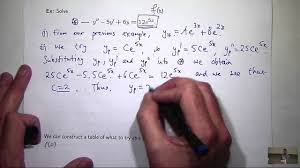 Ex: Solve
y'' - 5y' + 6y = 12e^{5x}
f(x)
i) from our previous example, y_H = Ae^{3x} + Be^{2x}
ii) We try y_p = Ce^{5x}, so y_p' = 5Ce^{5x}, y_p'' = 25Ce^{5x}
Substituting y_p, y_p' and y_p'' into we obtain
25Ce^{5x} - 5.5Ce^{5x} + 6Ce^{5x} = 12e^{5x} and we see that
C=2. Thus, y_p =
We can construct a table of what to try
f(x)